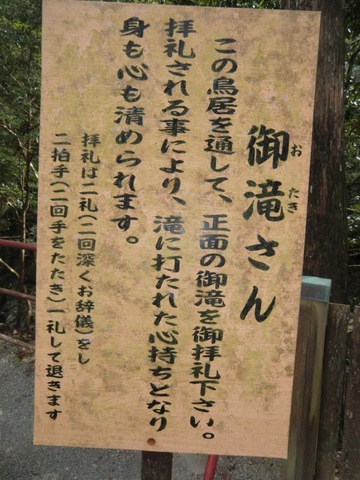 御滝さん
おたき
この鳥居を通して、正面の御滝を御拝礼下さい。
拝礼される事により、滝に打たれた心持ちとなり
身も心も清められます。
拝礼は二礼(二回深くお辞儀)をし
二拍手(二回手をたたき)一礼して退きます